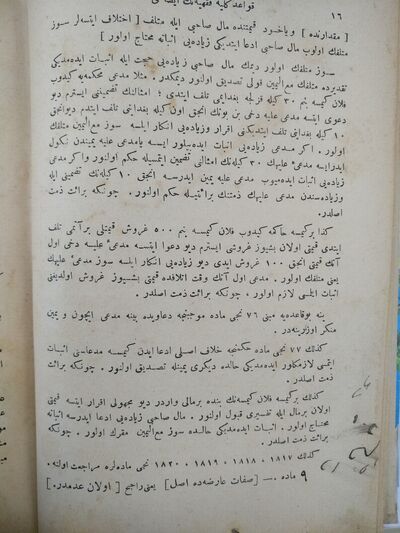 ١٦ قواعد كليه فقهيه نك ايضاحى
[ مقدارنده ] وياخود قيمتنده مال صاحبى ايله متلف [ اختلاف ايتسه لر سوز
متلفك اولوب مال صاحبى ادعا ايتديكى زياده يى اثباته محتاج اولور ]
سوز متلفك اولور ديمك مال صاحبى زياده يى حجت ايله اثبات ايده مديكى
تقديرده متلفك مع اليمين قولى تصديق اولنور ديمكدر . مثلا مدعى محكمه يه كيدوب
فلان كيمسه بنم ٣٠ كيله قزلجه بغدايمى تلف ايتدى ؛ امثالنك تضمينى ايسترم ديو
دعوى ايتسه مدعى عليه دخى بن بونك انجق اون كيله بغدايى تلف ايتدم ديو انجق
١٠ كيله بغدايى تلف ايتديكنى اقرار وزياده يى انكار ايلسه سوز مع اليمين متلفك
اولور . اكر مدعى زياده يى اثبات ايده بيلور ايسه يا مدعى عليه يميندن نكول
ايدرايسه مدعى عليهك ٣٠ كيله نك امثالنى تضمين ايتمسيله حكم اولنور واكر مدعى
زياده يى اثبات ايده ميوب مدعى عليه يمين ايدرسه انجق ١٠ كيله نك تضمينى ايله
وزياده سندن مدعى عليهك ذمتنك برائتيله حكم اولنور . چونكه برائت ذمت
اصلدر.
كذا بركيمسه حاكمه كيدوب فلان كيمسه بنم ٥٠٠ غروش قيمتلى برآتمى تلف
ايتدى قيمتى اولان بشيوز غروشى ايسترم ديو دعوا ايتسه مدعى عليه دخى اول
آتك قيمتى انجق ١٠٠ غروش ايدى ديو زياده يى انكار ايلسه سوز مدعى عليهك
يعنى متلفك اولور . مدعى اول آتك وقت اتلافده قيمتى بشيوز غروش اولديغنى
اثبات ايتمسى لازم اولور ، چونكه برائت ذمت اصلدر.
ينه بوقاعده يه مبنى ٧٦ نجى ماده موجبنجه دعاويده بينه مدعى ايچون و يمين
منكر اوزرينه در.
كذلك ٧٧ نجى ماده حكمنجه خلاف اصلى ادعا ايدن كيمسه مدعاسنى اثبات
ايتمسى لازمكلور ايده مديكى حالده ديكرى يمينله تصديق اولنور . چونكه برائت
ذمت اصلدر.
كذلك بركيمسه فلان كيمسه نك بنده برمالى واردر ديو مجهولى اقرار ايتسه قيمتى
اولان برمال ايله تفسيرى قبول اولنور . مال صاحبى زياده يى ادعا ايدرسه اثباته
محتاج اولور . اثبات ايده مديكى حالده سوز مع اليمين مقرك اولور . چونكه
برائت ذمت اصلدر.
كذلك ١٨١٧ ، ١٨١٨ ، ١٨١٩ ، ١٨٢٠ نجى ماده لره مراجعت اولنه .
٩ ماده .— [ صفات عارضه ده اصل ] يعنى راجح [ اولان عدمدر. ]